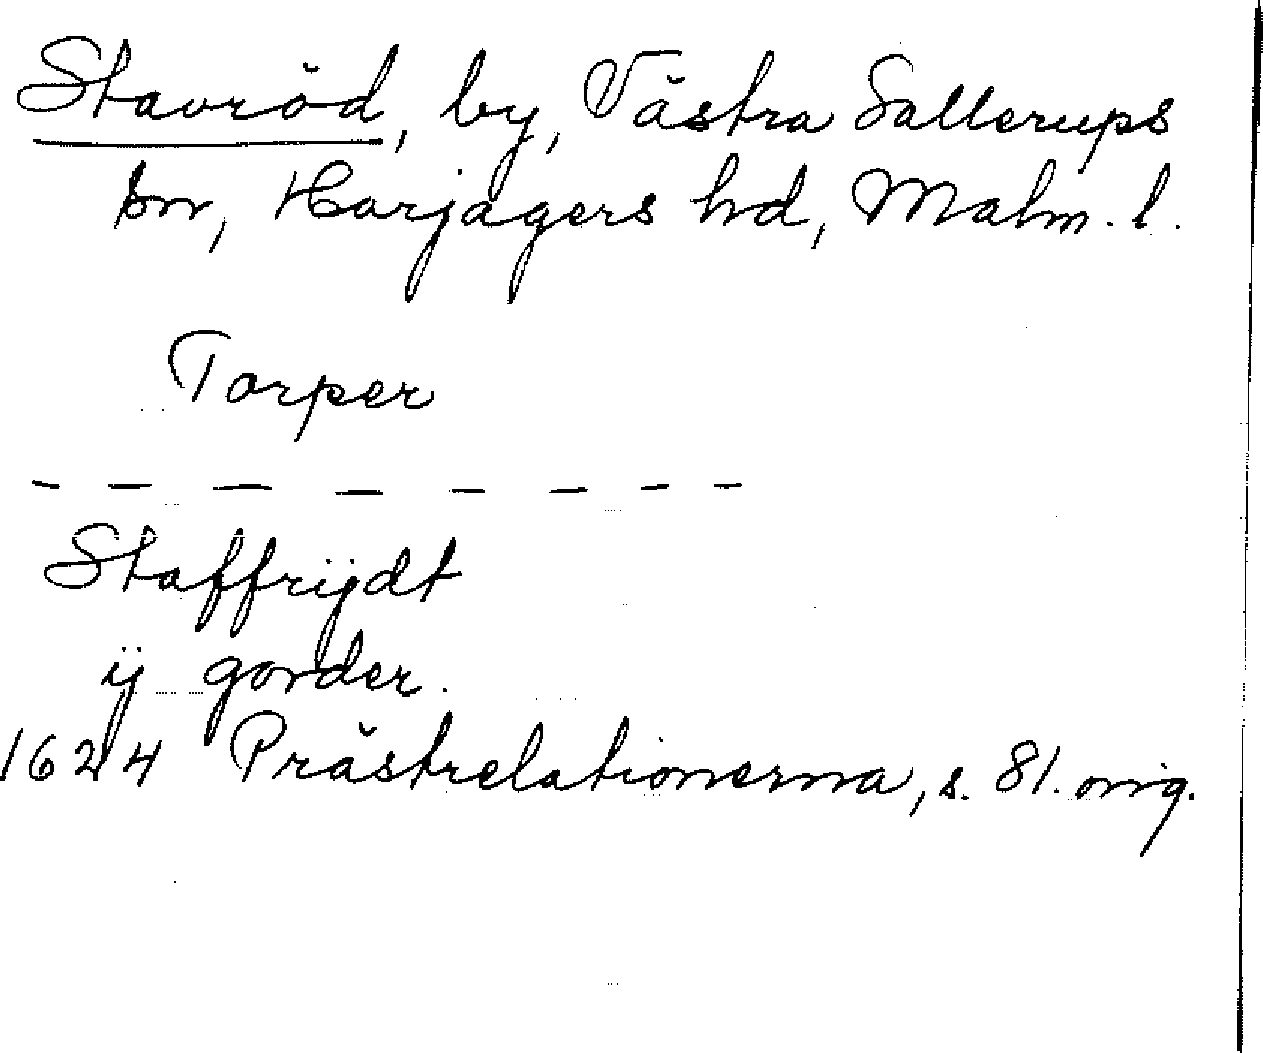 Stavröd, by, Västra Sallerups
sn, Harjagers hd, Malm. l.
Torper
– – – – – – – –
Staffrÿdt
ÿ gorder.
1624 Prästrelationerna, s. 81. orig.